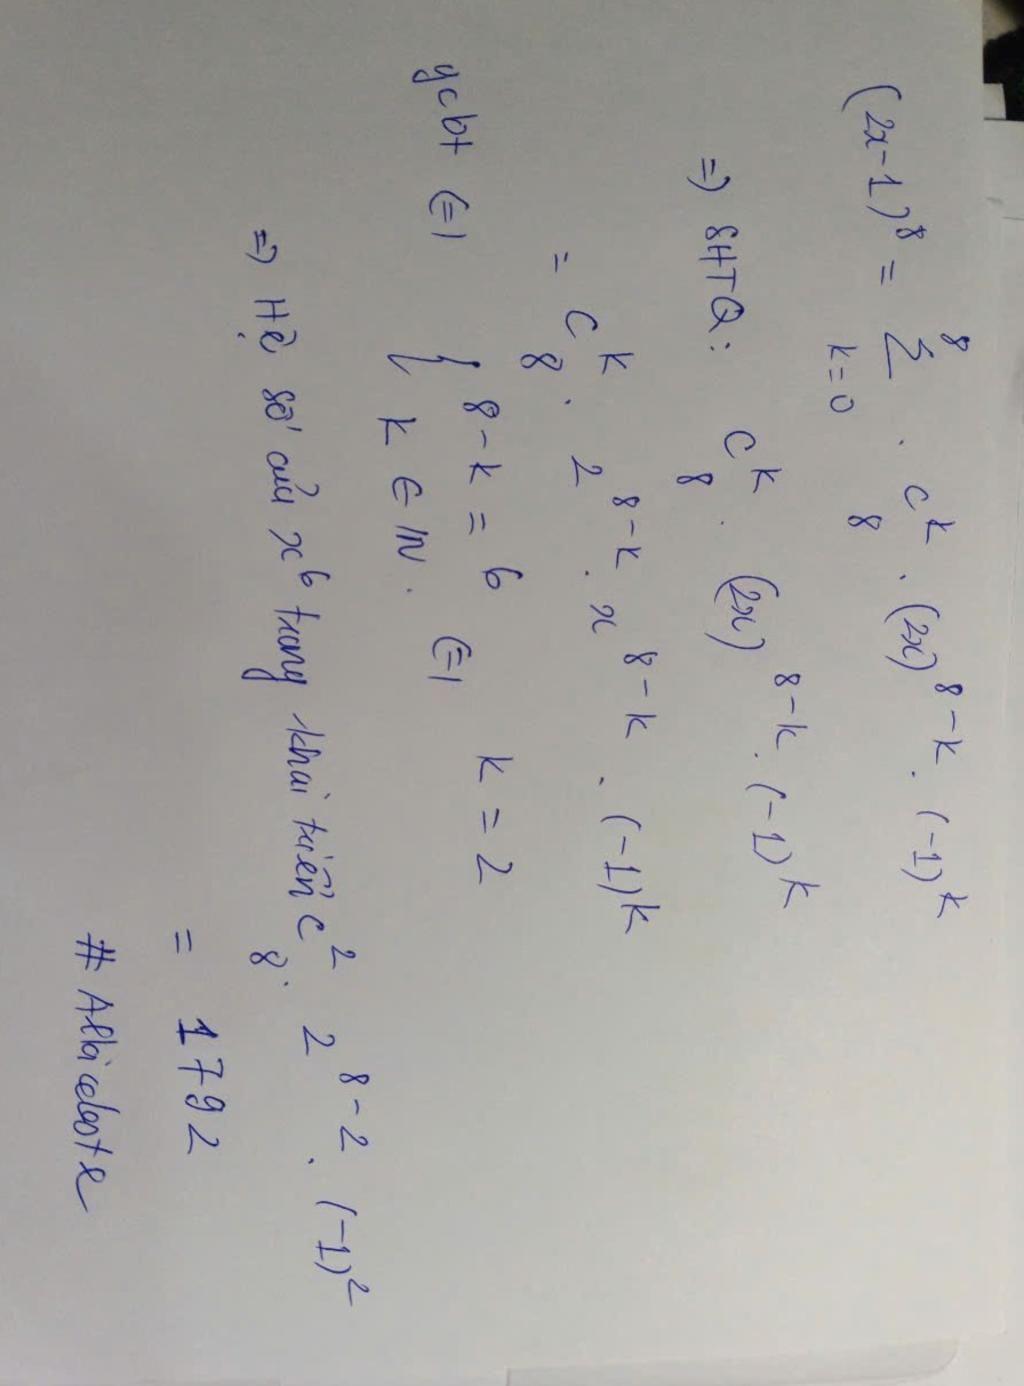 (2x-1)^8 = \sum_{k=0}^{8} . C_8^k . (2x)^{8-k} . (-1)^k
=) SHTQ: C_8^k . (2x)^{8-k} . (-1)^k
= C_8^k . 2^{8-k} . x^{8-k} . (-1)^k
ycbt (=) { 8-k = 6
k ∈ IN. (=) k = 2
=) Hệ số của x^6 trong khai triển C_8^2 . 2^{8-2} . (-1)^2
= 1792